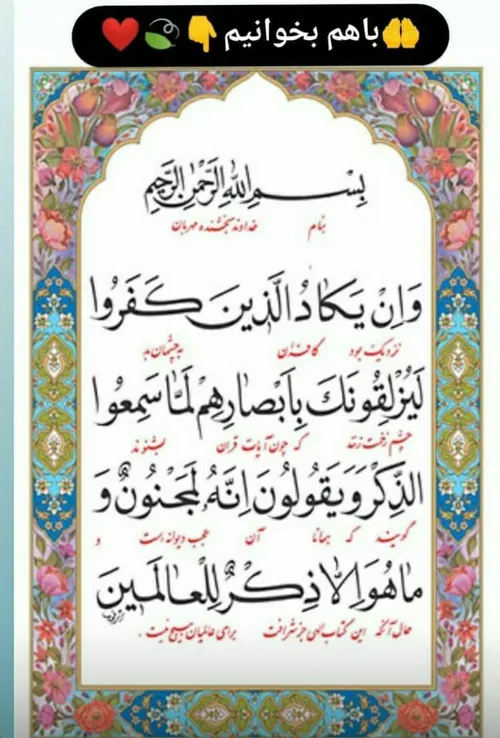 🤲باهم بخوانیم👇🍃❤️
بِسْمِ اللهِ الرَّحْمٰنِ الرَّحِيمِ
بنام خداوند بخشنده مهربان
وَاِنْ يَكادُ الَّذينَ كَفَرُوا
نزدیک بود کافران به چشمان بد
لَيُزْلِقُونَكَ بِاَبْصارِهِمْ لَمّا سَمِعُوا
چشم زخمت زنند که چون آیات قرآن بشنوند
الذِّكْرَ وَ يَقُولُونَ اِنَّهُ لَمَجْنُونٌ وَ
گویند که همانا آن عجب دیوانه است و
ما هُوَ اِلّا ذِكْرٌ لِلْعالَمينَ
حال آنکه این کتاب الهی جز شرافت برای عالمیان هیچ نیست .